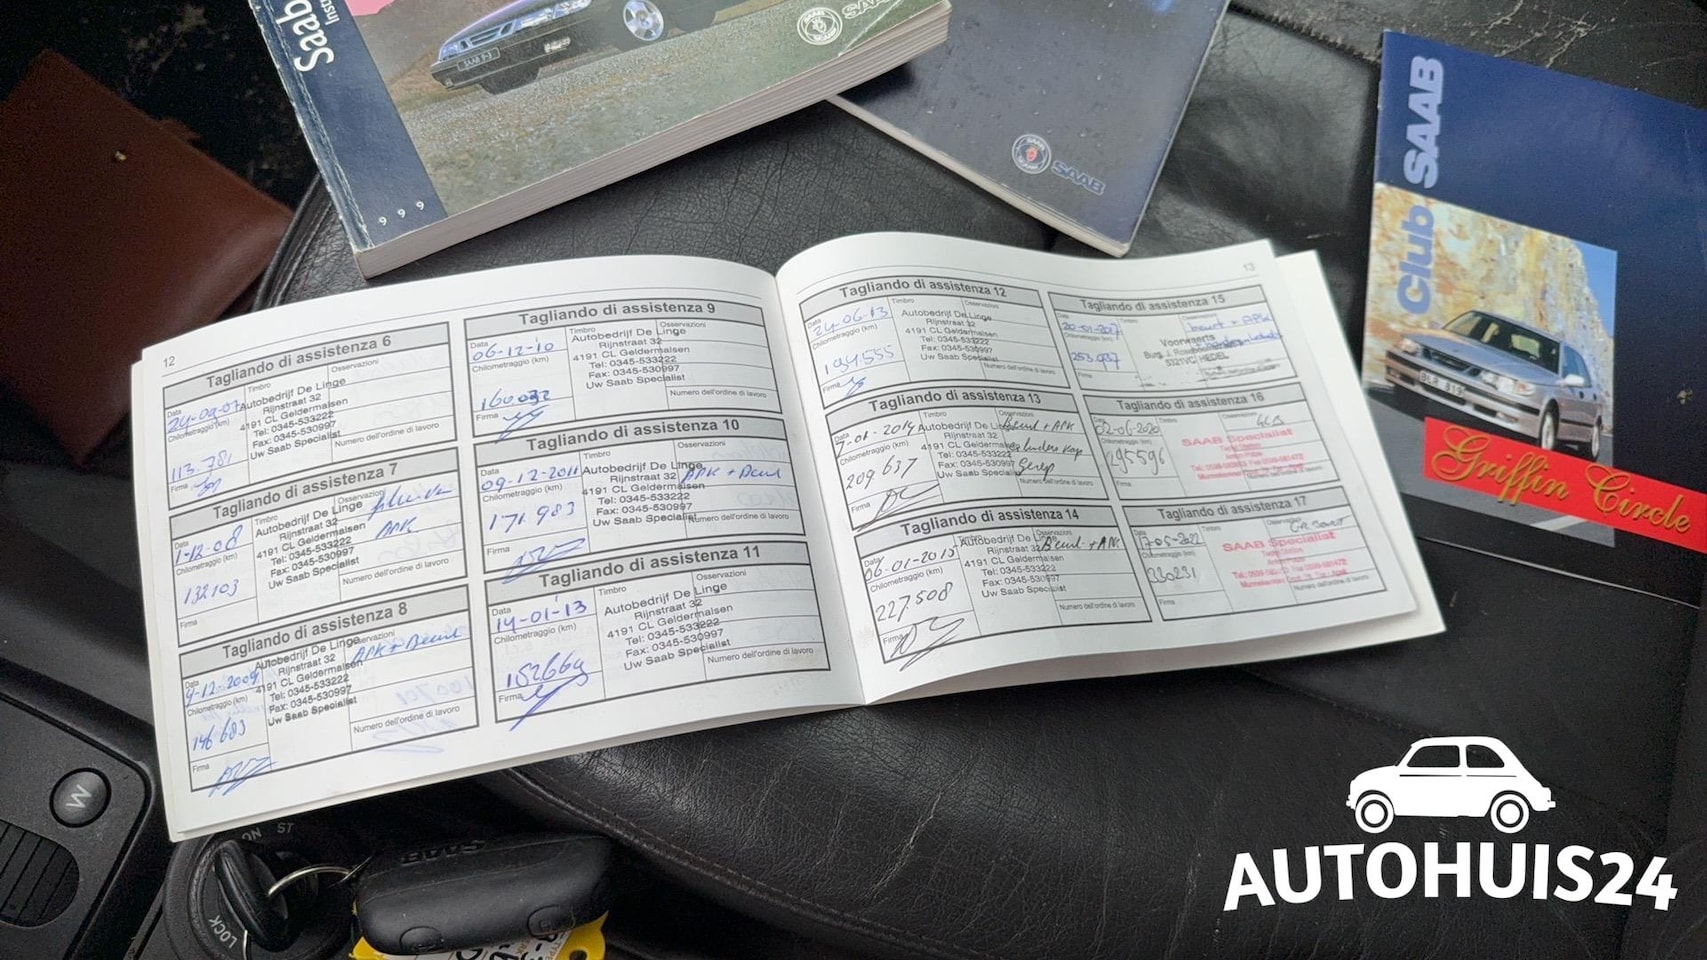 Saab
999
SAAB 9-3
SAAB
SAAB
SAAB
Club SAAB
BLR 819
Griffin Circle
12
Tagliando di assistenza 6
Data
Timbro
Osservazioni
Chilometraggio (km)
113.781
Firma
Autobedrijf De Linge
Rijnstraat 32
4191 CL Geldermalsen
Tel: 0345-533222
Fax: 0345-530997
Uw Saab Specialist
Numero dell'ordine di lavoro
Tagliando di assistenza 7
Data
Timbro
Osservazioni
1-12-08
APK
Chilometraggio (km)
132.103
Firma
Autobedrijf De Linge
Rijnstraat 32
4191 CL Geldermalsen
Tel: 0345-533222
Fax: 0345-530997
Uw Saab Specialist
Tagliando di assistenza 8
Data
Timbro
Osservazioni
9-12-2009
APK + Beurt
Chilometraggio (km)
146 683
Firma
Autobedrijf De Linge
Rijnstraat 32
4191 CL Geldermalsen
Tel: 0345-533222
Fax: 0345-530997
Uw Saab Specialist
Numero dell'ordine di lavoro
Tagliando di assistenza 9
Data
Timbro
Osservazioni
06-12-'10
Chilometraggio (km)
160.032
Firma
Autobedrijf De Linge
Rijnstraat 32
4191 CL Geldermalsen
Tel: 0345-533222
Fax: 0345-530997
Uw Saab Specialist
Numero dell'ordine di lavoro
Tagliando di assistenza 10
Data
Timbro
Osservazioni
09-12-2011
APK + Beurt
Chilometraggio (km)
171.983
Firma
Autobedrijf De Linge
Rijnstraat 32
4191 CL Geldermalsen
Tel: 0345-533222
Fax: 0345-530997
Uw Saab Specialist
Numero dell'ordine di lavoro
Tagliando di assistenza 11
Data
Timbro
Osservazioni
14-01-'13
Chilometraggio (km)
Firma
Autobedrijf De Linge
Rijnstraat 32
4191 CL Geldermalsen
Tel: 0345-533222
Fax: 0345-530997
Uw Saab Specialist
Numero dell'ordine di lavoro
13
Tagliando di assistenza 12
Data
Timbro
Osservazioni
24-06-13
Chilometraggio (km)
194555
Firma
Autobedrijf De Linge
Rijnstraat 32
4191 CL Geldermalsen
Tel: 0345-533222
Fax: 0345-530997
Uw Saab Specialist
Numero dell'ordine di lavoro
Tagliando di assistenza 13
Timbro
Osservazioni
-01-2014
Beurt + APK
Chilometraggio (km)
209 637
Firma
Autobedrijf De Linge
Rijnstraat 32
4191 CL Geldermalsen
Tel: 0345-533222
Fax: 0345-530997
Uw Saab Specialist
Numero dell'ordine di lavoro
Tagliando di assistenza 14
Data
Timbro
Osservazioni
06-01-2015
Beurt + APK
Chilometraggio (km)
227.508
Firma
Autobedrijf De Linge
Rijnstraat 32
4191 CL Geldermalsen
Tel: 0345-533222
Fax: 0345-530997
Uw Saab Specialist
Numero dell'ordine di lavoro
Tagliando di assistenza 15
Data
Timbro
Osservazioni
20-01-2017
beurt + APK
Chilometraggio (km)
253.937
Firma
Voorwaerts
HEDEL
Tagliando di assistenza 16
Data
Timbro
Osservazioni
02-06-2020
Chilometraggio (km)
295596
SAAB Specialist
Numero dell'ordine di lavoro
Tagliando di assistenza 17
Timbro
Osservazioni
Chilometraggio (km)
SAAB Specialist
Firma
Numero dell'ordine di lavoro
W
ON
ST
LOCK
SAAB
AUTOHUIS24